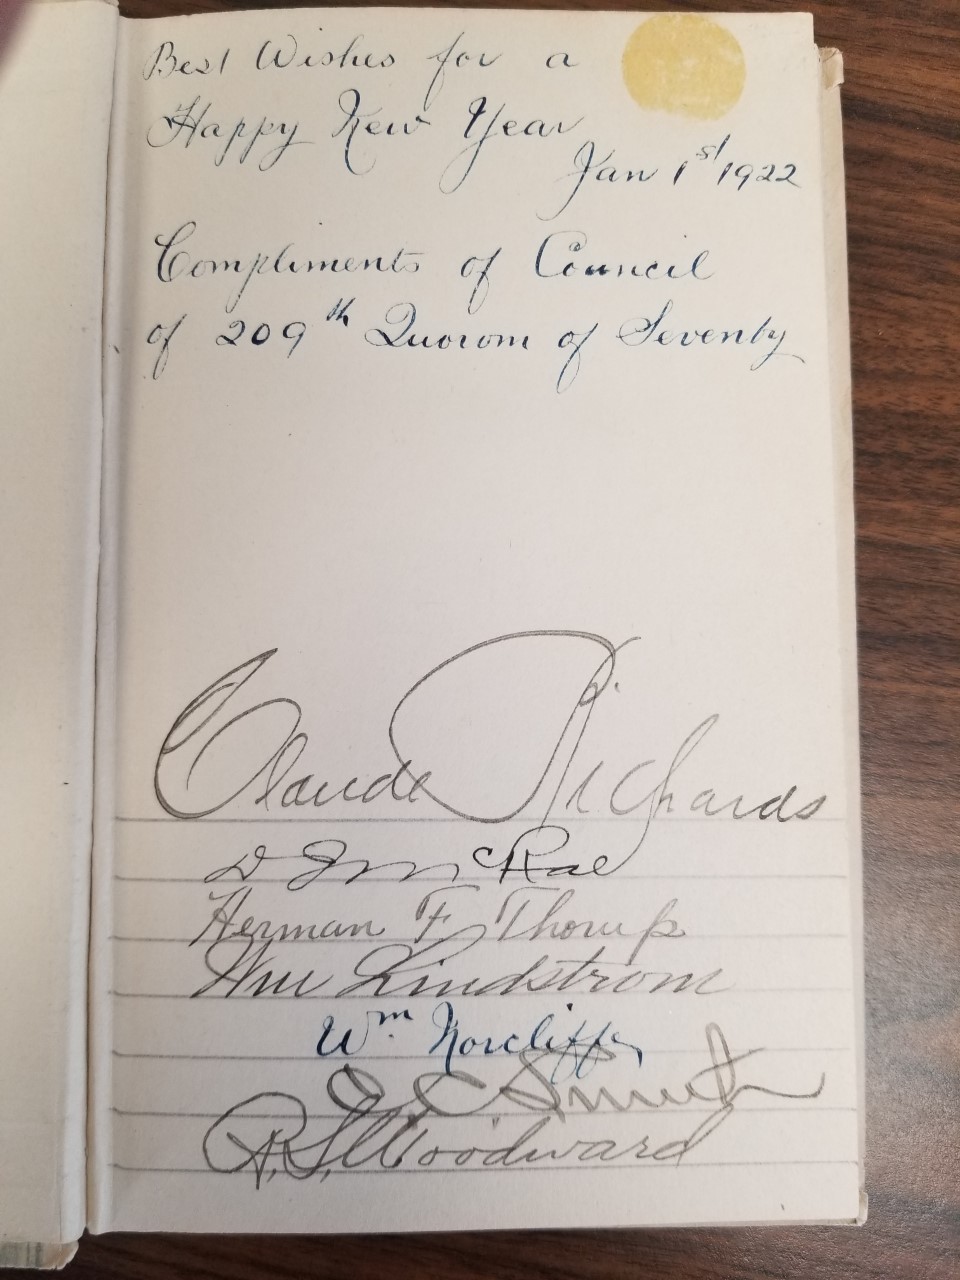 Best Wishes for a
Happy New Year
Jan 1st 1922
Compliments of Council
of 209th Quorom of Seventy
Claude Richards
D J McRae
Herman F Thorup
Wm Lindstrom
Wm Norcliffe
O C Smith
R. S. Woodward